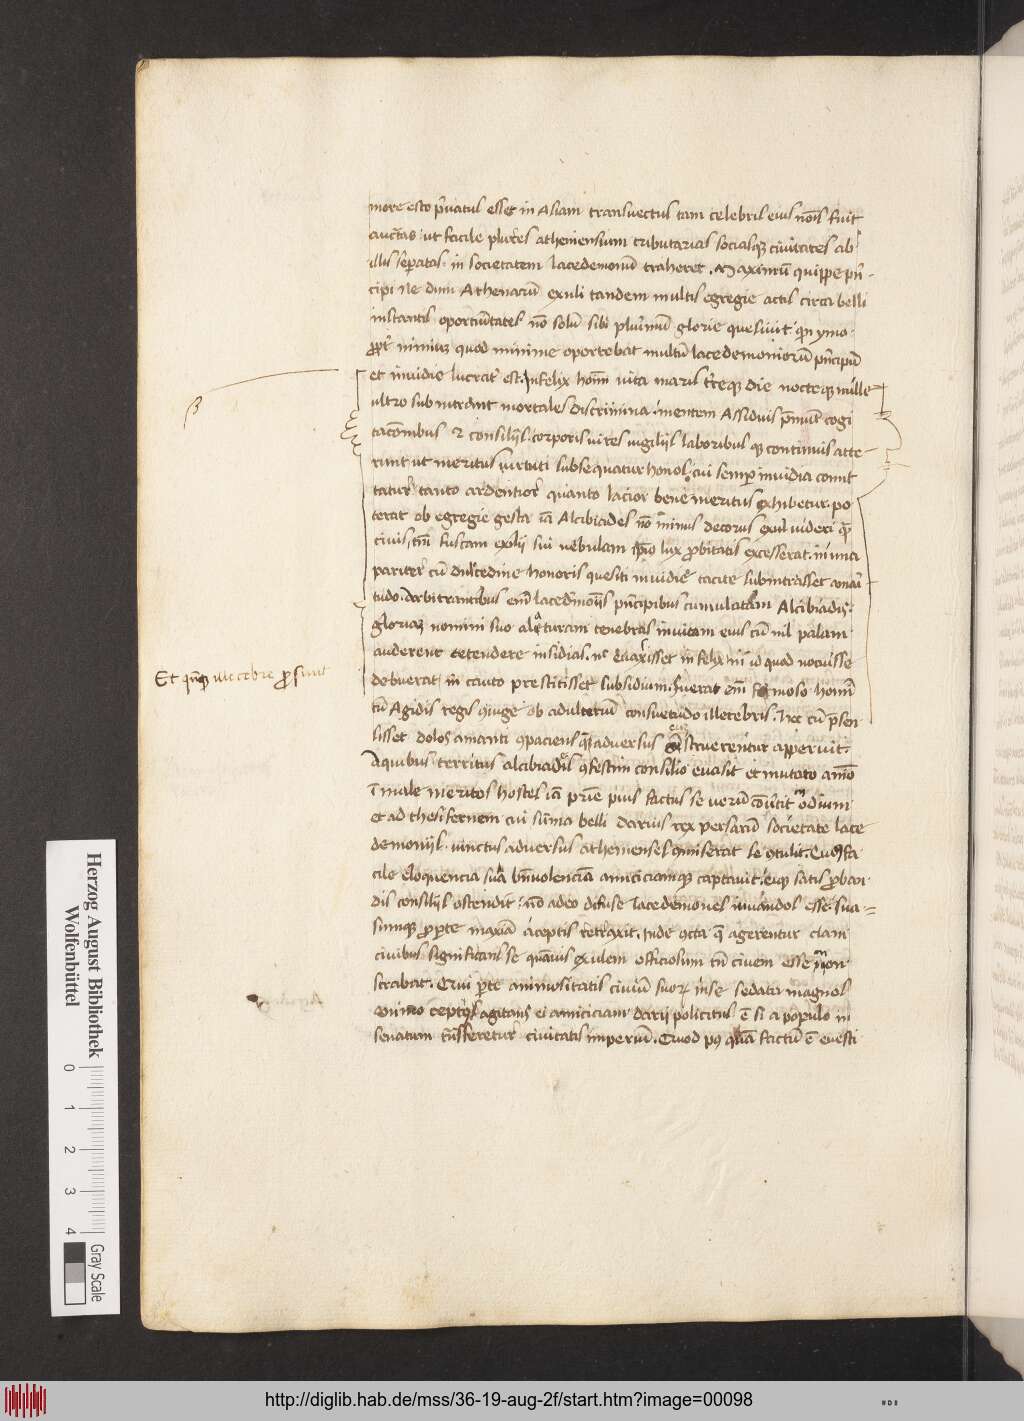 more esto p̄uatus esset in Asiam transuectus tam celebris eius nōis fuit
auct̄tas ut facile plures atheniensium tributarias sociasq̄ ciuitates ab
illis sep̄atas in societatem lacedemoniū traheret. Maximū quippe p̄n-
cipi Athenarū exuli tandem multis egregie actis circa belli
instantis oportunitates nō solū sibi plurimū glorie quesiuit
nimium quod minime oportebat multū lacedemoniorū p̄ncipū
et inuidie lucrat᷑ est. Infelix hoīm uita maris t̄req̄ die nocteq̄ mille
ultro subintrant mortales discrimina. mentem Assiduis cogi
tacōnibus ⁊ consilijs. corporis uires uigilijs laboribus q̄ continuis atte-
runt ut meritus uirtuti subsequatur honos. cui semp̄ inuidia comit
tatur tanto ardentior quanto lacior bene meritus exhibetur. po
terat ob egregie gesta iā Alcibiades nō minus decorus exul uideri q̄
ciuis, tm̄ fuscam exilij sui nebulam lux p̄bitatis excesserat. inuncta
pariter cū dulcedine honoris quesiti inuidie tacite subintrasset amari
tudo. Arbitrantibus em̄ lacedemōijs p̄ncipibus cumulatam Alcibiadis
gloriam nomini suo allaturam tenebras inuitam eius cū nil palam
auderent tetendere insidias. infelix nī id quod nocuisse
debuerat incauto prestitisset subsidium. Fuerat em̄ formoso hoīni
cū Agidis regis ꝯiuge ob adulteriū consuetudo illecebris. hec cū p̄sen
sisset dolos amanti ꝯpaciens q̄ aduersus eū struerentur apperuit.
A quibus territus alcibiades ꝯfestim consilio euasit et mutato aīo
ī male meritos hostes iā prīe pius factus se uerū cōuertit ī odium
et ad thesifernem cui sūma belli darius rex persarū societate lace
demonijs iunctus aduersus athenienses ꝯmiserat se ꝯtulit. Quē fa
cile eloquencia sua bn̄uolenciā amiciciamq̄ captauit. eiq̄ satis p̄ban
dis consilijs ostendit: nō adeo difuse lacedemones iuuandos esse. sua-
sumq̄ p̄ p̄te maxīa a ceptis retraxit. Inde ꝯcta q̄ agerentur clam
ciuibus significans se quāuis exulem officiosum tn̄ ciuem esse mon
strabat. Qui p̄te animositatis ciuiū suoꝝ in se sedata magnos
animo ceptus agitans ei amiciciam darij policitus ē si a populo in
senatum tn̄sferetur ciuitatis imperiū. Quod p9 quā factū ē euesti
Et illecebre p̄sint
Herzog August Bibliothek
Wolfenbüttel
0 1 2 3 4
Gray Scale
http://diglib.hab.de/mss/36-19-aug-2f/start.htm?image=00098